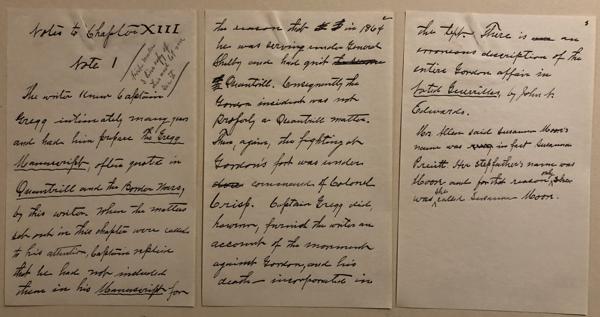 Notes to Chapter XIII
Note 1
The writer knew Captain
Gregg intimately many years
and had him prepare The Gregg
Manuscript, often quoted in
Quantrill and the Border Wars,
by this writer. When the matters
set out in this chapter were called
to his attention, Captain replied
that he had not included
them in his Manuscript for
2
the reason that in 1864
he was serving under General
Shelby and had quit
Quantrill. Consequently the
Gordon incident was not
properly a Quantrill matter.
Then, again, the fighting at
Gordon's fort was under
command of Colonel
Crisp. Captain Gregg did,
however, furnish the writer an
account of the movement
against Gordon, and his
death - incorporated in
3
the text. There is an
erroneous description of the
entire Gordon affair in
Noted Guerrillas, by John N.
Edwards.
Mr. Allen said Susanna Moor's
name was in fact Susanna
Preuitt. Her stepfather's name was
Moor and for that reason only
was she called Susanna Moor.